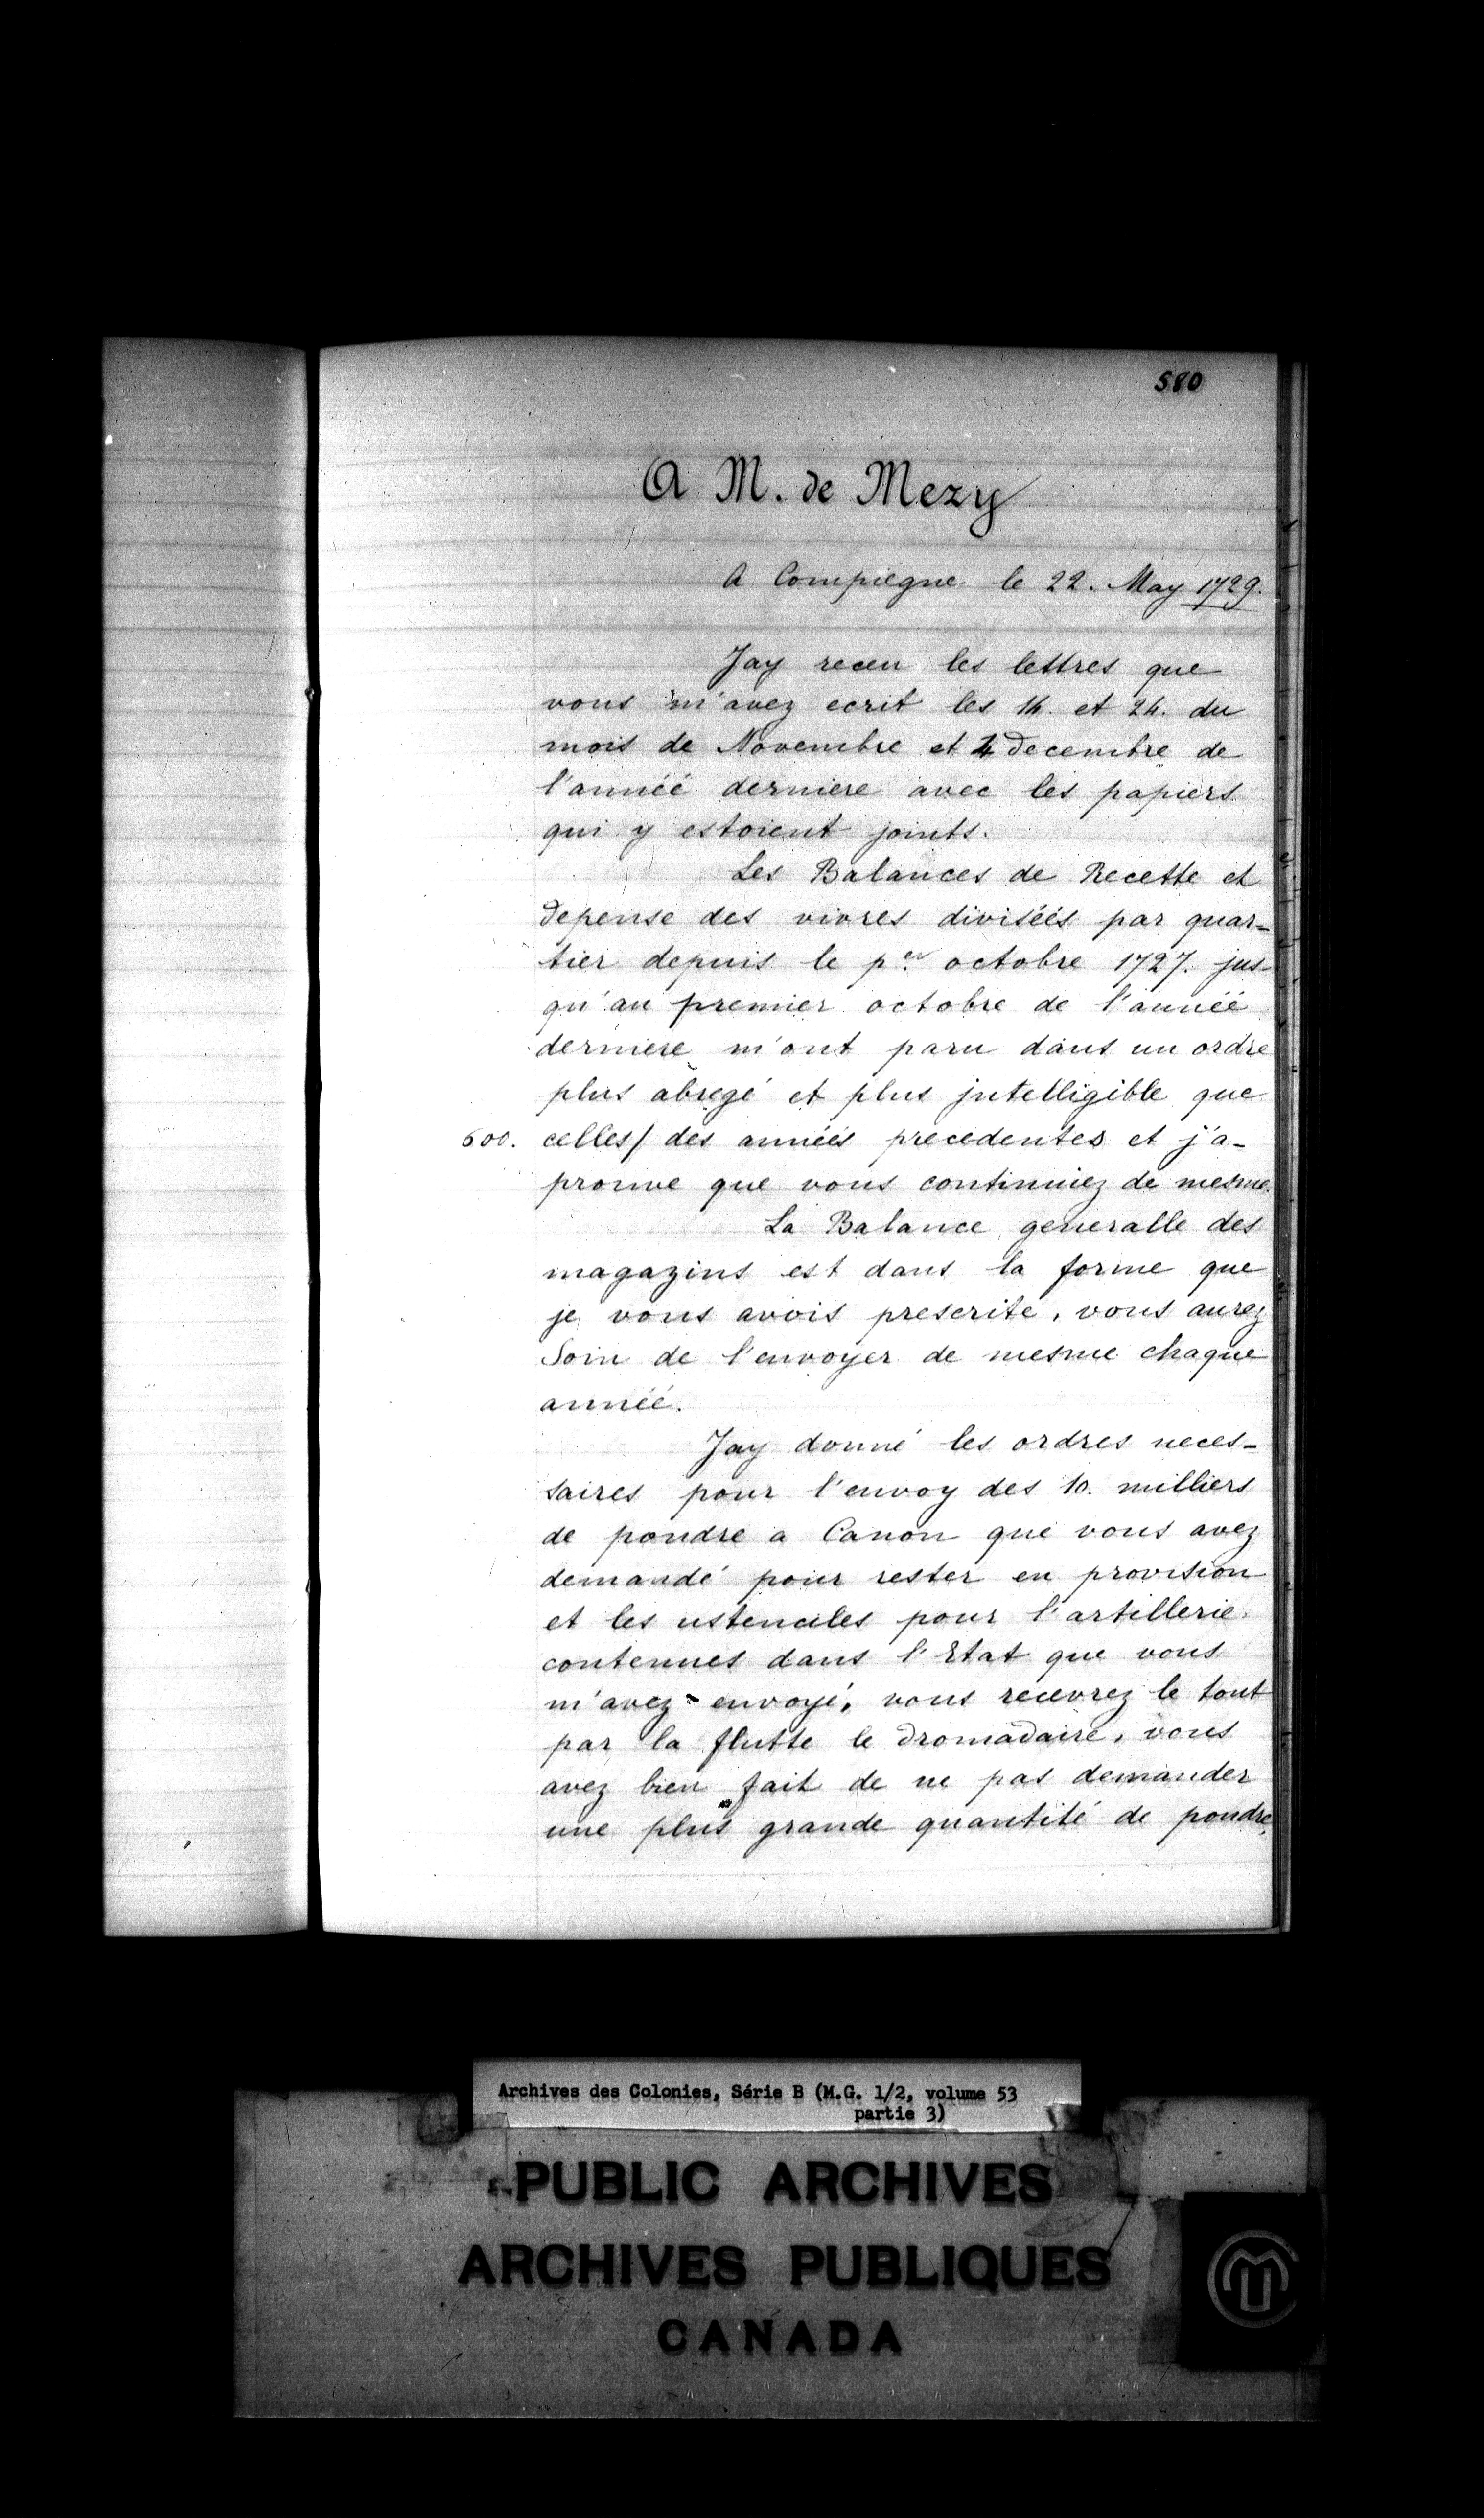 580
A M. de Mezy
A Compiegne le 22. May 1729.
Jay receu les lettres que
vous m'avez ecrit les 14. et 24. du
mois de Novembre et 4 decembre de
l'annéé derniere avec les papiers
qui y estoient joints.
Les Balances de Recette et
depense des vivres diviséés par quar-
tier depuis le per. octobre 1727. jus-
qu'au premier octobre de l'annéé
derniere m'ont paru dans un ordre
plus abregé et plus jntelligible que
600. celles/ des annéés precedentes et j'a-
prouve que vous continuiez de mesme.
La Balance generalle des
magazins est dans la forme que
je vous avois prescrite, vous aurez
Soin de l'envoyer de mesme chaque
annéé.
Jay donné les ordres neces-
saires pour l'envoy des 10. milliers
de poudre a Canon que vous avez
demandé pour rester en provision
et les ustenciles pour l'artillerie
contenues dans l'Etat que vous
m'avez envoyé, vous recevrez le tout
par la flutte le dromadaire, vous
avez bien fait de ne pas demander
une plus grande quantité de poudre,
Archives des Colonies, Série B (M.G. 1/2, volume 53
partie 3)
PUBLIC ARCHIVES
ARCHIVES PUBLIQUES
CANADA